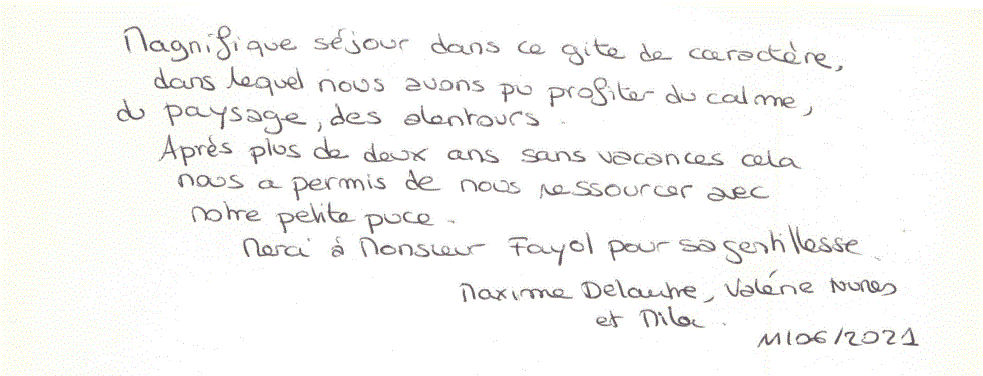 Magnifique séjour dans ce gite de caractère,
dans lequel nous avons pu profiter du calme,
du paysage, des alentours.
Après plus de deux ans sans vacances cela
nous a permis de nous ressourcer avec
notre petite puce.
Merci à Monsieur Fayol pour sa gentillesse.
Maxime Delautre, Valérie Nunes
et Mila.
11/06/2021